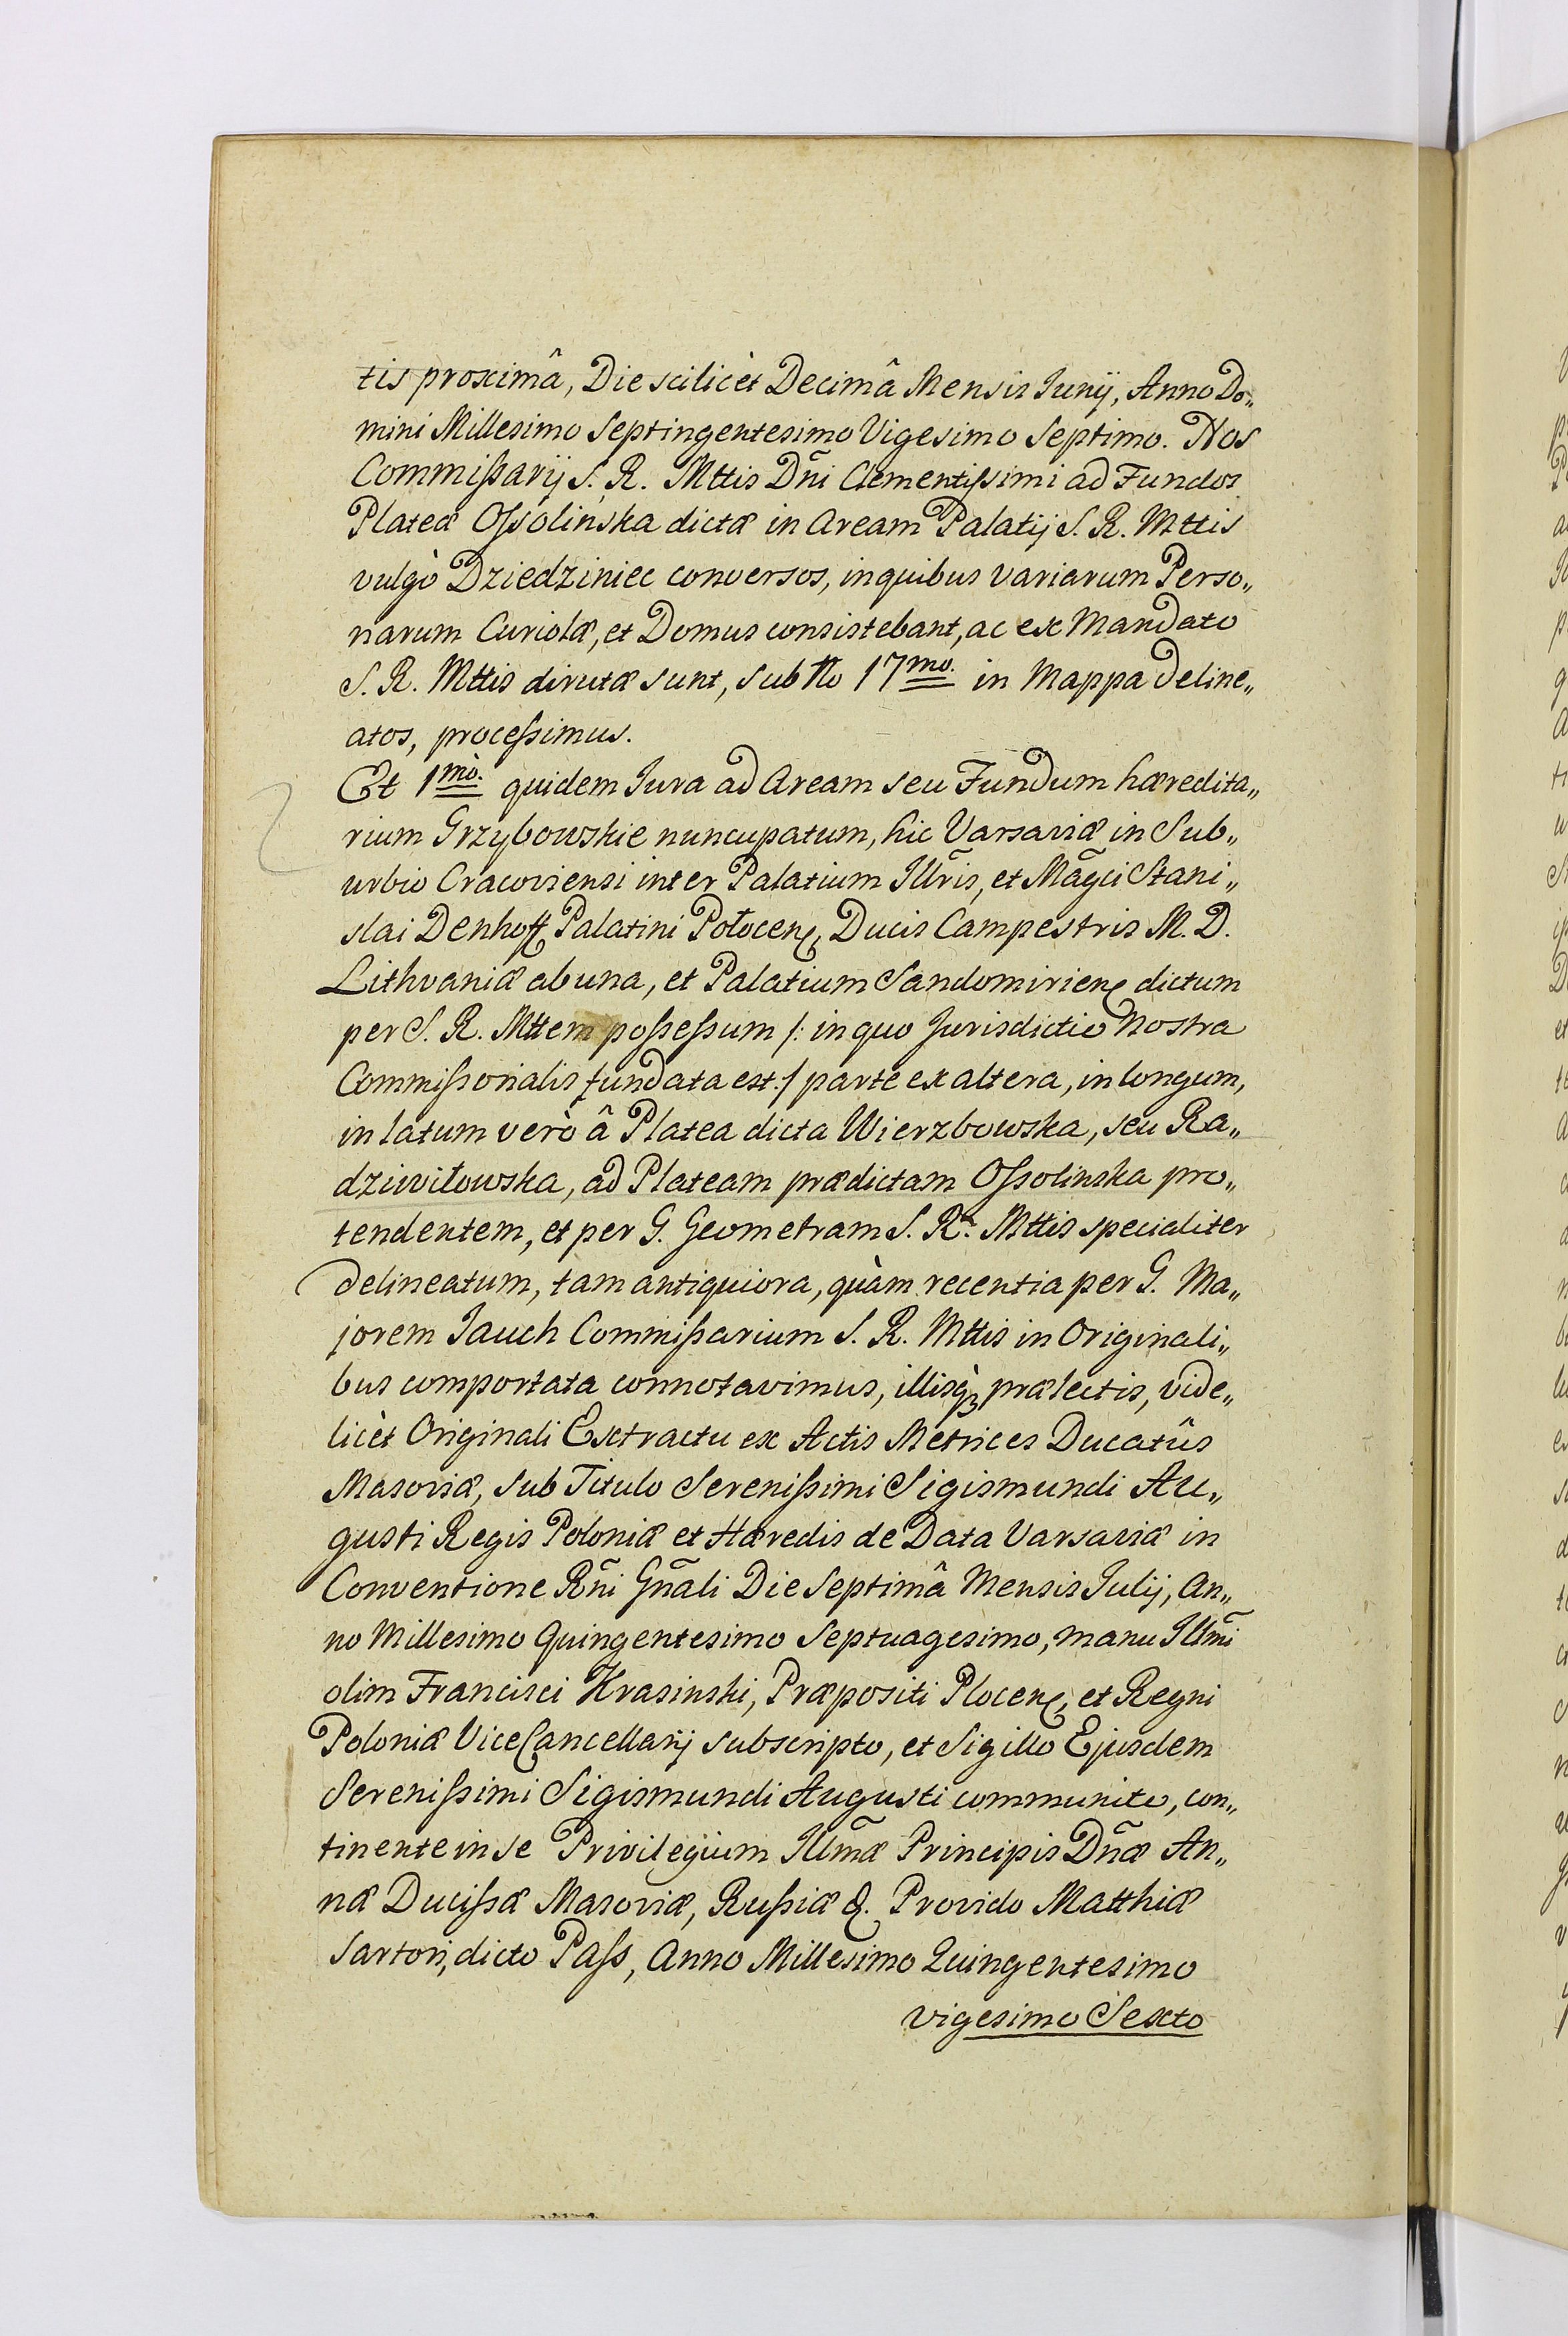 tis proximâ, Die scilicèt Decimâ Mensis Junij, Anno Do„
mini Millesimo Septingentesimo Vigesimo Septimo. Nos
Commißarij S. R. Mttis Dñi Clementißimi ad Fundos
Plateæ Oßolinska dictæ in Aream Palatij S. R. Mttis
vulgò Dziedziniec conversos, in quibus variarum Perso„
narum Curiolæ, et Domus consistebant, ac ex Mandato
S. R. Mttis dirutæ sunt, sub No 17mo. in Mappa deline„
atos, proceßimus.
Et 1mò. quidem Jura ad Aream seu Fundum hæredita„
rium Grzybowskie nuncupatum, hic Varsaviæ in Sub„
urbio Cracoviensi inter Palatium Illr̃is, et Mag̃ci Stani„
slai Denhoff Palatini Połocen, Ducis Campestris M. D.
Lithvaniæ ab una, et Palatium Sandomirien dictum
per S. R. Mttem poßeßum /: in quo Jurisdictio Nostra
Commißorialis fundata est :/ parte ex altera, in longum,
in latum verò â Platea dicta Wierzbowska, seu Ra„
dziwiłowska, ad Plateam prædictam Oßolinska pro„
tendentem, et per G. Geometram S. R. Mttis specialiter
delineatum, tam antiquiora, quàm recentia per G. Ma„
jorem Jauch Commißarium S. R. Mttis in Originali„
bus comportata connotavimus, illisq̀ꝫ prælectis, vide„
licèt Originali Extractu ex Actis Metrices Ducatûs
Masoviæ, sub Titulo Sereníßimi Sigismundi Au„
gusti Regis Poloniæ et Hæredis de Data Varsaviæ in
Conventione Rñi Gñali Die Septimâ Mensis Julij, An„
no Millesimo Quingentesimo Septuagesimo, manu Illm̃i
olim Francisci Krasinski, Præpositi Plocen, et Regni
Poloniæ ViceCancellarij subscripto, et Sigillo Ejusdem
Sereníßimi Sigismundi Augusti communito, con„
tinente in se Privilegium Illm̃æ Principis Dñæ An„
næ Ducißæ Masoviæ, Rußiæ &. Provido Matthiæ
Sartori, dicto Paß, Anno Millesimo Quingentesimo
vigesimo Sexto